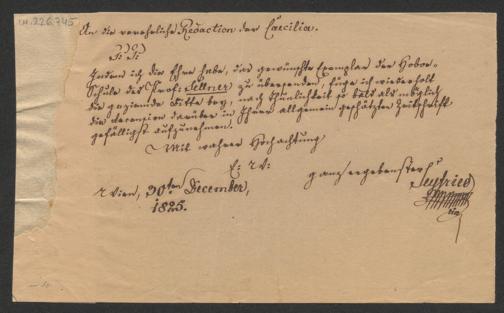 IN.226.745
An die verehrliche Redaction der Caecilia.
P: P:
Indem ich die Ehre habe, das gewünschte Exemplar der Hoboe-
Schule des Prof: Sellner zu übersenden, füge ich wiederholt
die geziemende Bitte bey, nach Thunlichkeit so bald als möglich
die Recension darüber in Ihrer allgemein geschätzten Zeitschrift
gefälligst aufzunehmen.
Mit wahrer Hochachtung
E: W:
ganz ergebenster
Seyfried
Wien, 30ten December,
1825.